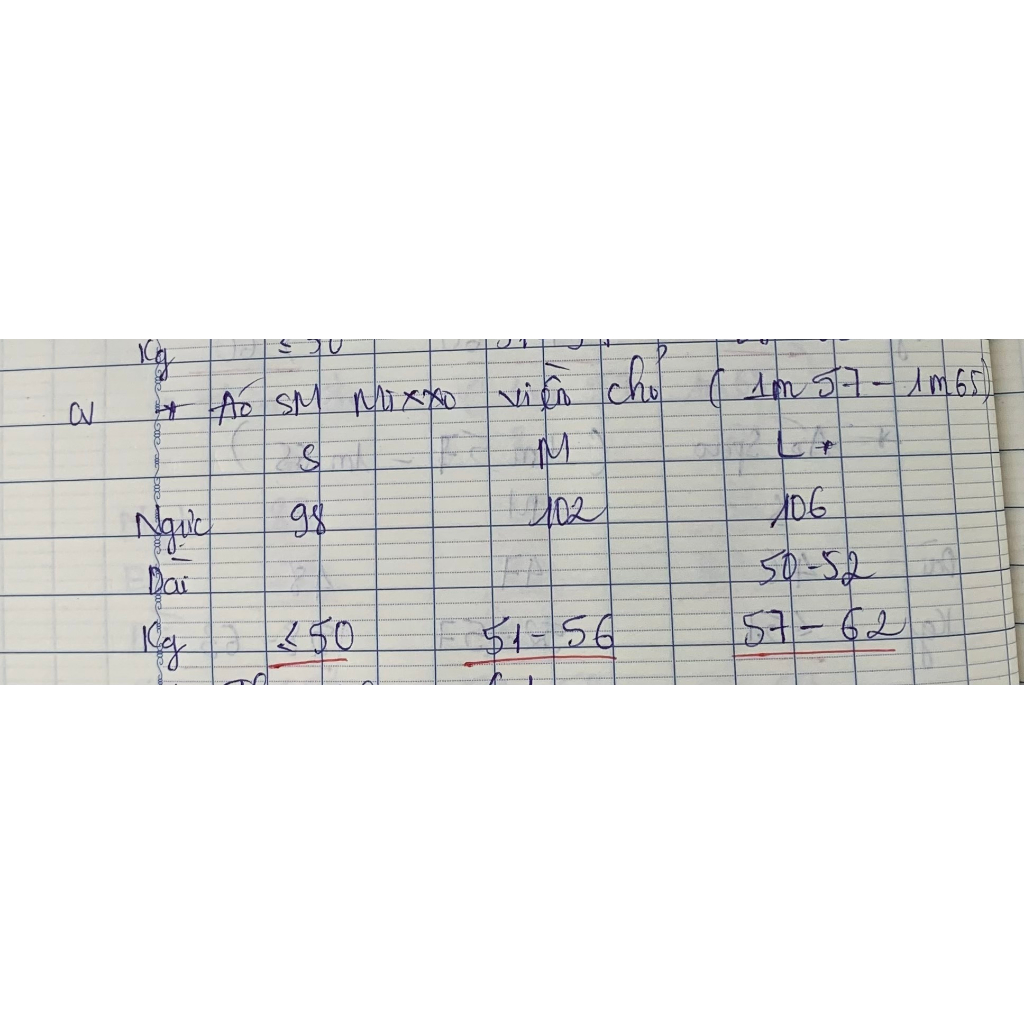 Kg ≤ 50
* Áo SM Mixxo viền chỉ (1m57 - 1m65)
S M L *
Ngực 98 102 106
Dài 50-52
Kg ≤ 50 51 - 56 57 - 62